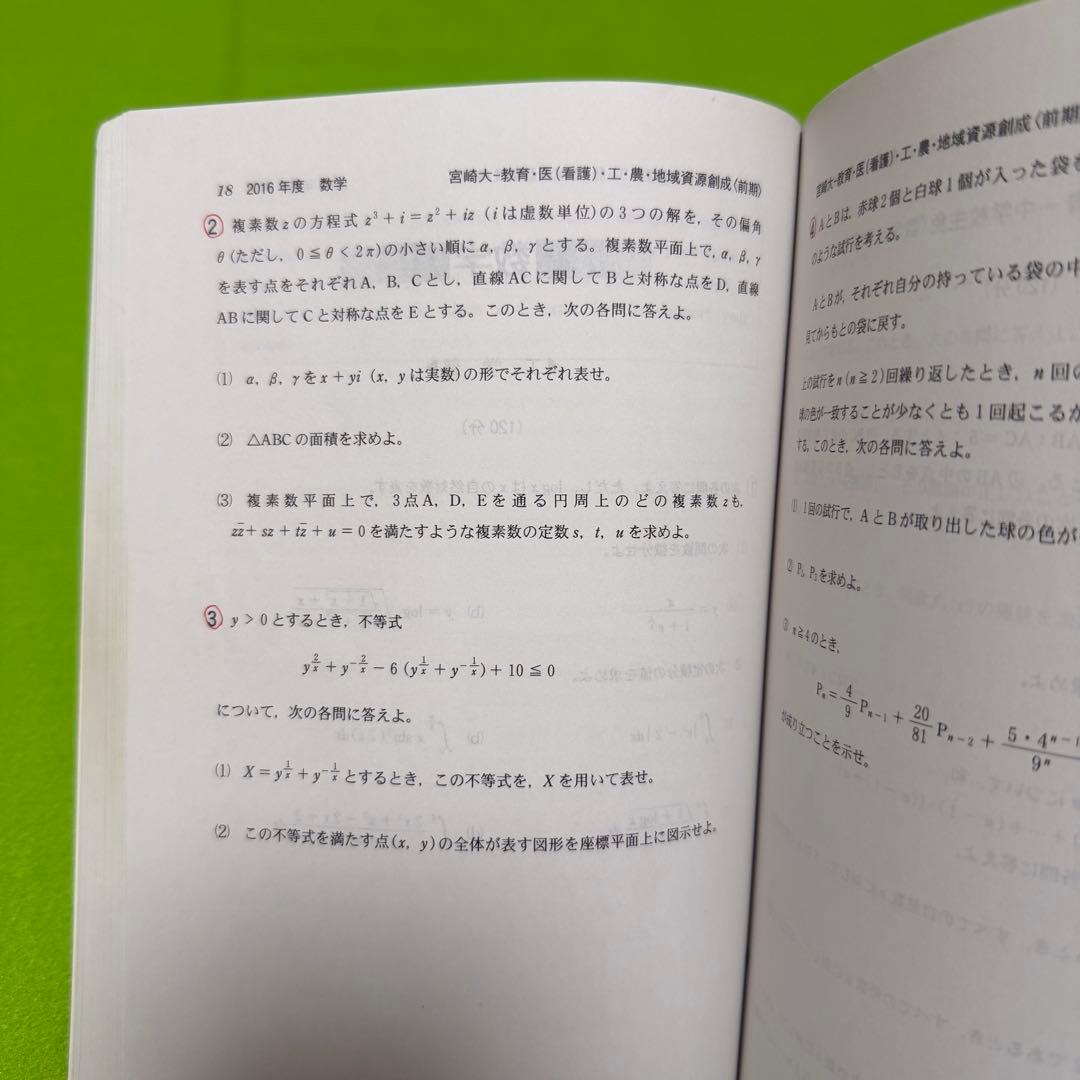 18 2016年度 数学 宮崎大-教育・医(看護)・工・農・地域資源創成〈前期〉
2 複素数zの方程式 z³+i=z²+iz (iは虚数単位)の3つの解を,その偏角
θ(ただし, 0≦θ<2π)の小さい順にα, β, γとする。複素数平面上で, α, β, γ
を表す点をそれぞれA, B, Cとし,直線ACに関してBと対称な点をD,直線
ABに関してCと対称な点をEとする。このとき,次の各問に答えよ。
(1) α, β, γをx+yi (x, yは実数)の形でそれぞれ表せ。
(2) △ABCの面積を求めよ。
(3) 複素数平面上で,3点A, D, Eを通る円周上のどの複素数zも,
zz̄+sz+tz̄+u=0を満たすような複素数の定数s, t, uを求めよ。
3 y>0とするとき,不等式
y^{2/x}+y^{-2/x}-6(y^{1/x}+y^{-1/x})+10≦0
について,次の各問に答えよ。
(1) X=y^{1/x}+y^{-1/x}とするとき,この不等式を,Xを用いて表せ。
(2) この不等式を満たす点(x, y)の全体が表す図形を座標平面上に図示せよ。
宮崎大-教育・医(看護)・工・農・地域資源創成〈前期
4 AとBは,赤球2個と白球1個が入った袋を
のような試行を考える。
AとBが,それぞれ自分の持っている袋の中
見てからもとの袋に戻す。
上の試行をn(n≧2)回繰り返したとき,n回の
球の色が一致することが少なくとも1回起こるか
する。このとき,次の各問に答えよ。
(1) 1回の試行で,AとBが取り出した球の色が
(2) を求めよ。
(3) n≧4のとき,
Pₙ=4/9 Pₙ₋₁+20/81 Pₙ₋₂+5・4ⁿ⁻¹/9ⁿ
が成り立つことを示せ。